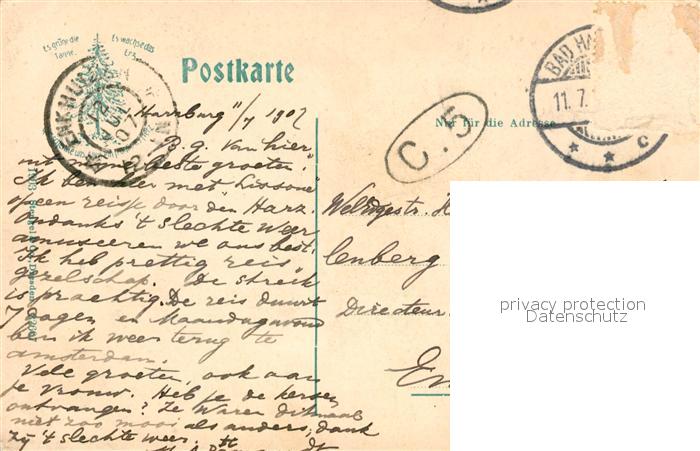 Es grüne die
Tanne.
Es wachse das
Erz.
Postkarte
Harzburg 11/7 1907
B. g. Van hier
met mijn beste groeten.
Ik ben hier met Lissone
op een reisje door den Harz.
Ondanks 't slechte weer
amuseeren we ons best.
Ik heb prettig reis
gezelschap. De streek
is prachtig. De reis duurt
7 dagen en Maandagavond
ben ik weer terug te
Amsterdam.
Vele groeten, ook aan
je vrouw. Heb je de kersen
ontvangen? Ze waren ditmaal
niet zoo mooi als anders, dank
zij 't slechte weer.
Nur für die Adresse
C. 5
BAD HA
11. 7.
* * c
lenberg
Directeur
En
privacy protection
Datenschutz